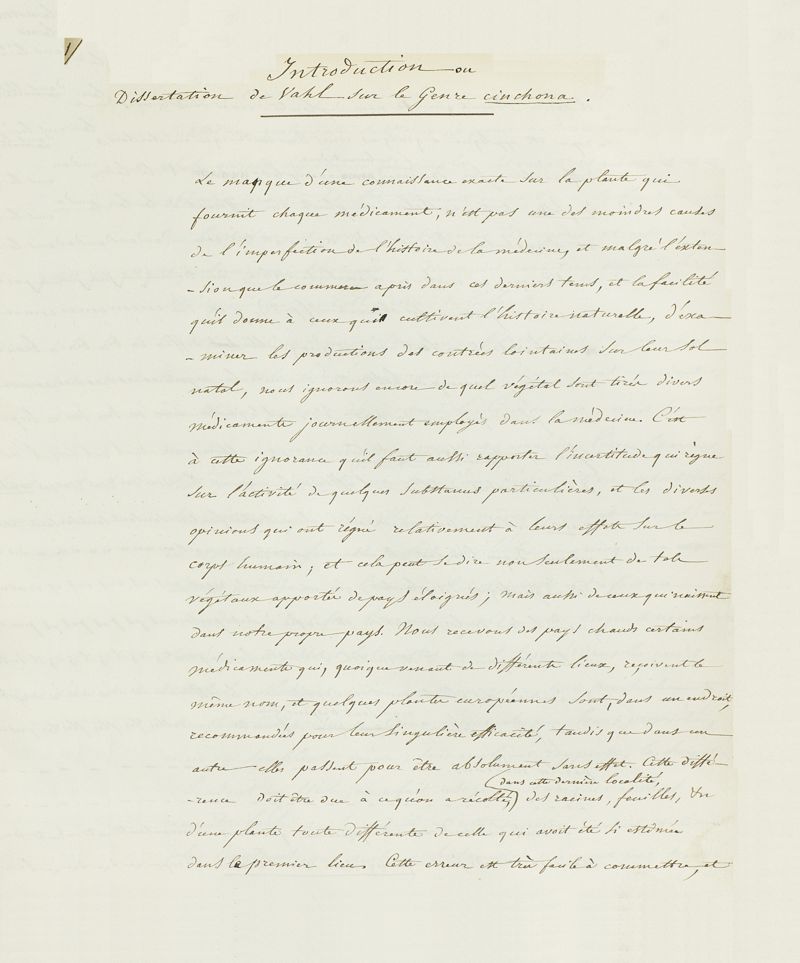 1/
Introduction ou
Dissertation de Vahl sur le Genre cinchona.
Le manque d'une connaissance exacte sur la plante qui
fournit chaque médicament, n'est pas une des moindres causes
de l'imperfection de l'histoire de la médecine, et malgré l'exten-
-sion que le commerce a pris dans ces derniers tems, et la facilité
qu'il donne à ceux qui cultivent l'histoire naturelle, d'éxa-
-miner les productions des contrées lointaines sur leur sol
natal, nous ignorons encore de quel végétal sont tirés divers
médicamens journellement employés dans la médecine. C'est
à cette ignorance qu'il faut aussi rapporter l'incertitude qui règne
sur l'activité de quelques substances particulières, et les diverses
opinions qui ont régné relativement à leurs effets sur le
corps humain; et cela peut se dire non seulement de tels
végétaux apportés de pays éloignés; mais aussi de ceux qui naissent
dans notre propre pays. Nous recevons des pays chauds certains
médicamens qui, quoique venant de différens lieux, reçoivent le
même nom, et quelques plantes européennes sont, dans un endroit,
recommandées pour leur singulière efficacité, tandis que dans un
autre elles passent pour être absolument sans effet. Cette diffé-
dans cette dernière localité,
-rence doit être due à ce qu'on a récolté, des racines, feuilles, &c
d'une plante toute différente de celle qui avoit été si estimée
dans le premier lieu. Cette erreur est très facile à commettre, et